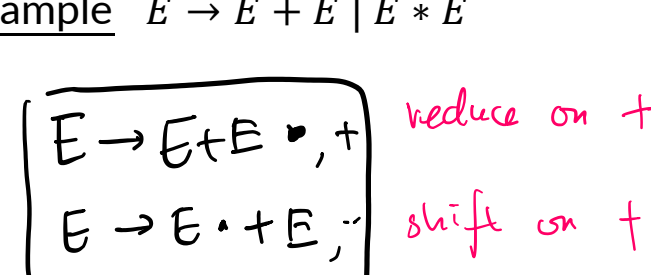 ample E → E + E | E * E
E → E+E •, + reduce on +
E → E • + E, .. shift on +